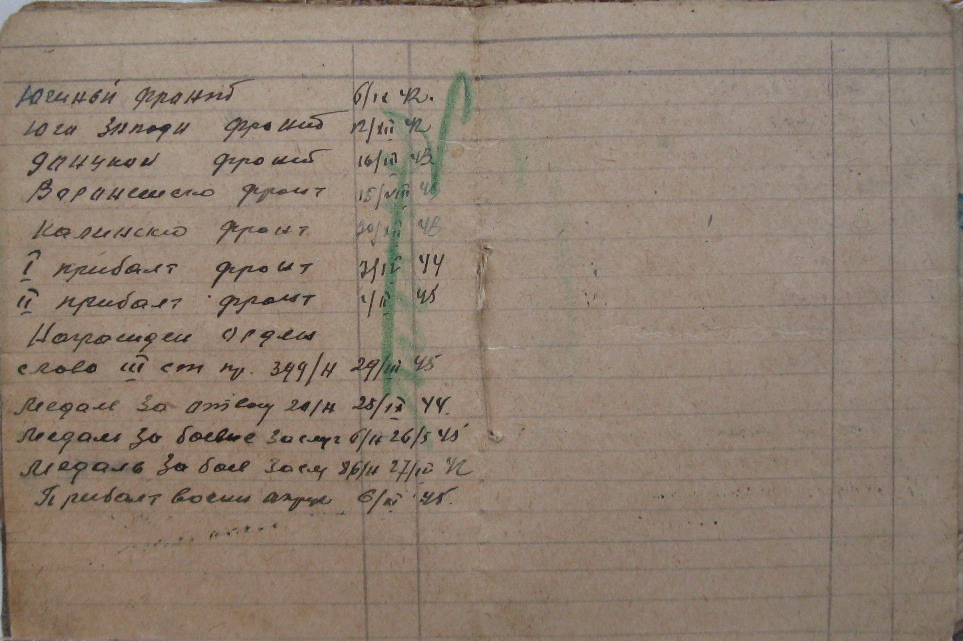 Южный фронт 6/IX 42.
Юга Запади фронт 12/XII 42
фронт 16/III 43
фронт 15/VIII 43
Калинско фронт 43
I прибалт фронт 3/IV 44
II прибалт фронт 45
Награжден Орден
слово III ст пр. 399/н 29/III 45
медаль За отвагу 20/н 25/IX 44.
медаль За боевые Заслуг 6/н 26/5 45
медаль За боев Заслу 86/н 27/IV 42
Прибалт воени округ 6/XI 45.